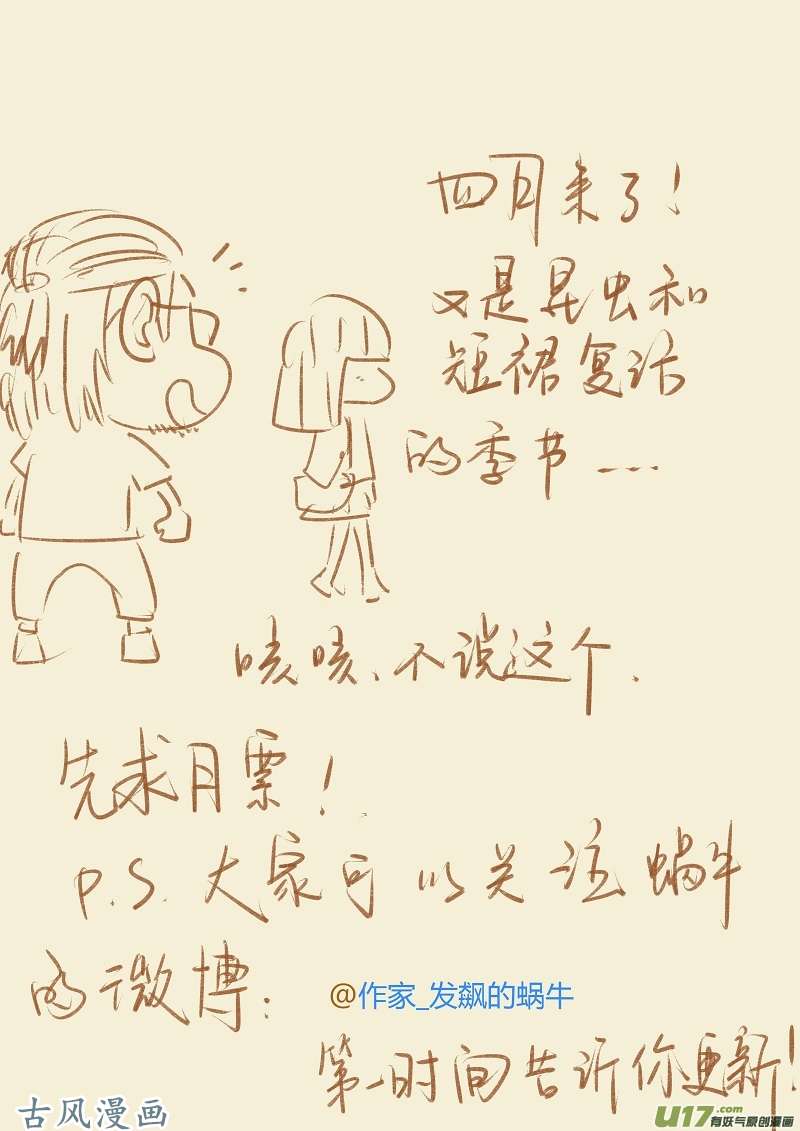 四月来了!
又是昆虫和
短裙复活
的季节……
咳咳、不说这个.
先求月票!
P.S.大家可以关注蜗牛
的微博:
@作家_发飙的蜗牛
第一时间告诉你更新!
古风漫画
U17.com
有妖气原创漫画